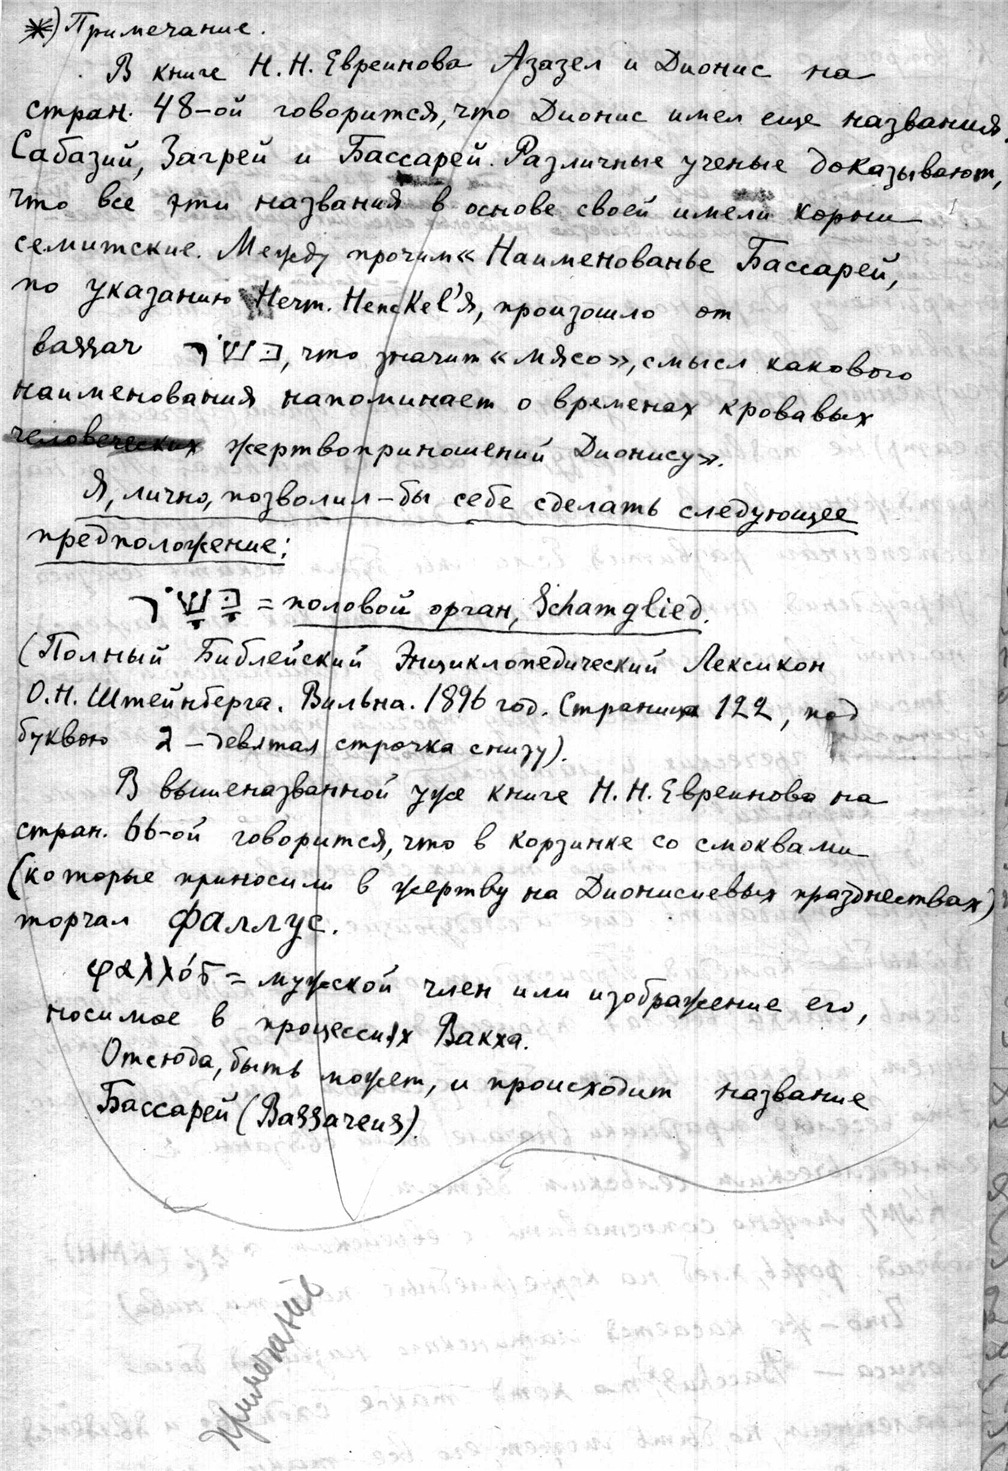 *) Примечание.
В книге Н.Н. Евреинова Азазел и Дионис на
стран. 48-ой говорится, что Дионис имел еще названия
Сабазий, Загрей и Бассарей. Различные ученые доказывают,
что все эти названия в основе своей имели корни
семитские. Между прочим « Наименованье Бассарей,
по указанию Неrm. Henckel'я, произошло от
bassar בשׂר, что значит «мясо», смысл какового
наименования напоминает о временах кровавых
человеческих жертвоприношений Дионису».
Я, лично, позволил-бы себе сделать следующее
предположение:
בָּשָׂר = половой орган, Schamglied.
(Полный Библейский Энциклопедический Лексикон
О.Н. Штейнберга. Вильна. 1896 год. Страница 122, под
буквою ב – девятая строчка снизу).
В вышеназванной уже книге Н.Н. Евреинова на
стран. 66-ой говорится, что в корзинке со смоквами
(которые приносили в жертву на Дионисиевых празднествах)
торчал фаллус.
φαλλός = мужской член или изображение его,
носимое в процессиях Вакха.
Отсюда, быть может, и происходит название
Бассарей (Bassareus).
примечание